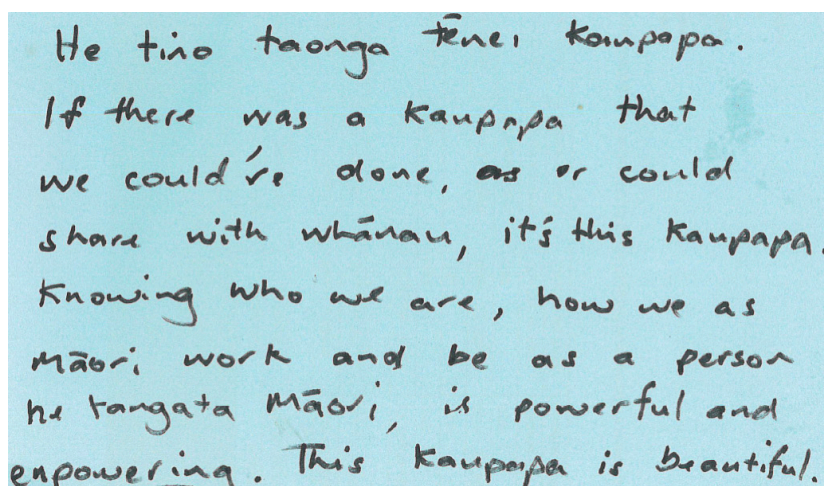 He tino taonga tēnei kaupapa.
If there was a kaupapa that
we could've done, as or could
share with whānau, it's this kaupapa.
Knowing who we are, how we as
Māori work and be as a person
he tangata Māori, is powerful and
enpowering. This kaupapa is beautiful.